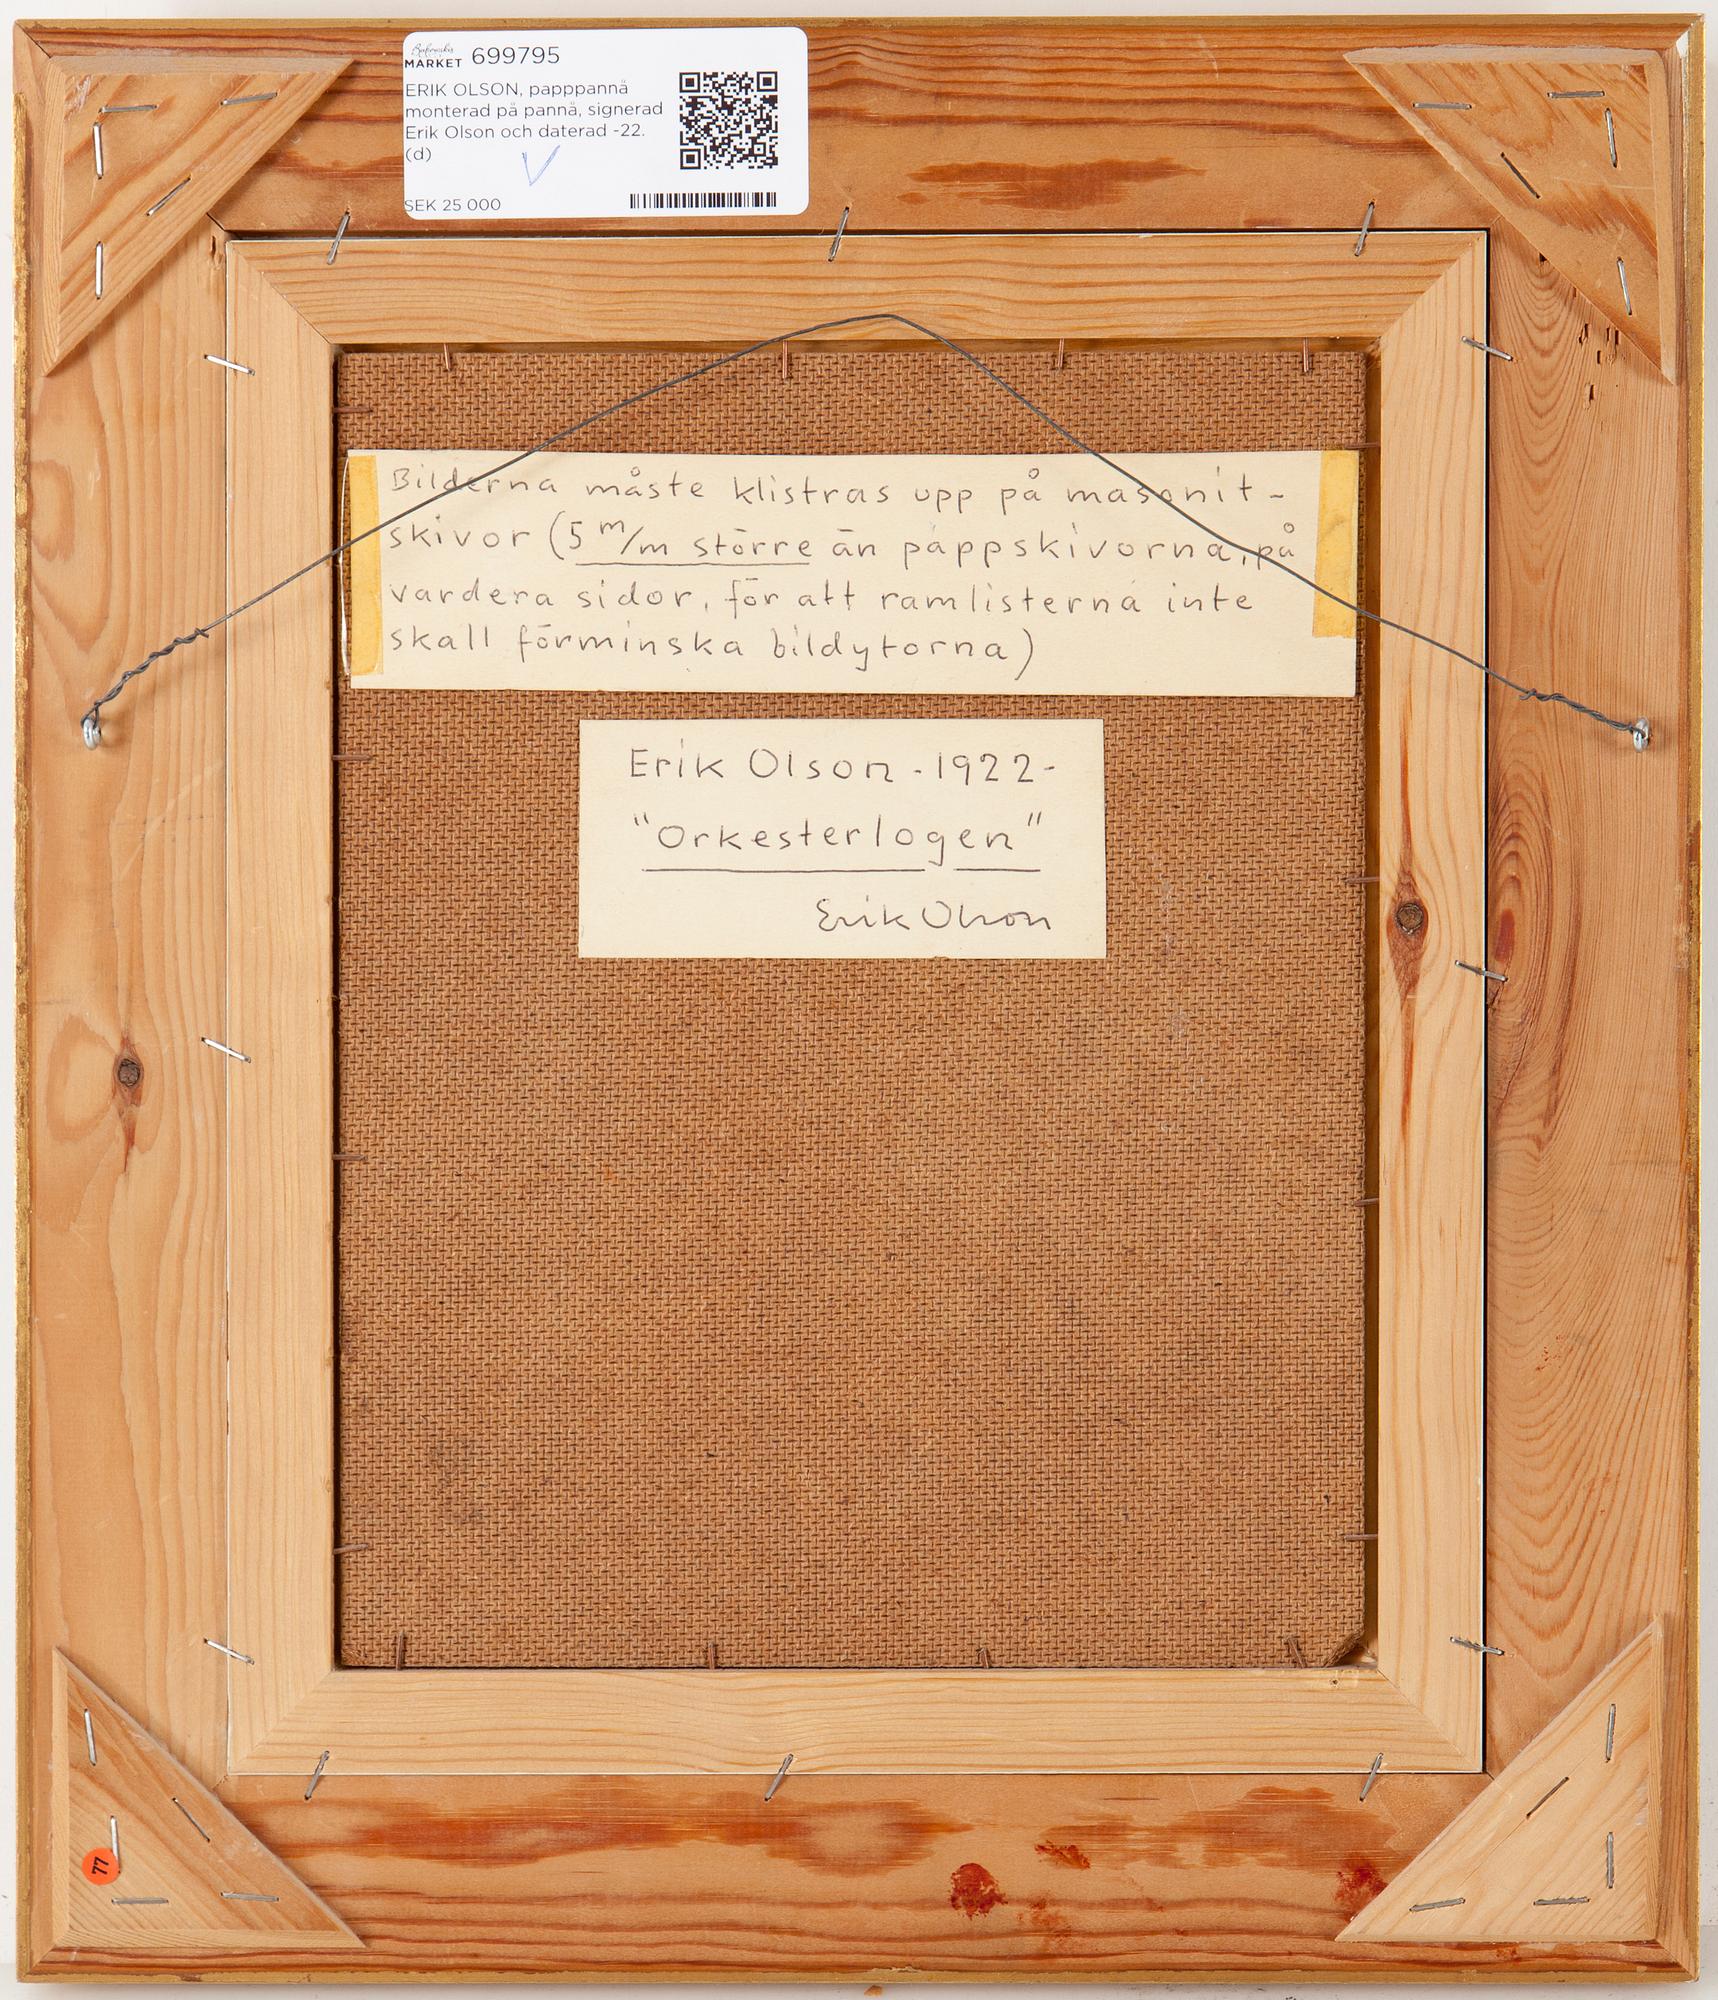 Bukowskis
MARKET 699795
ERIK OLSON, papppannå
monterad på pannå, signerad
Erik Olson och daterad -22.
(d)
SEK 25 000
Bilderna måste klistras upp på masonit-
skivor (5 m/m större än pappskivorna, på
vardera sidor, för att ramlisterna inte
skall förminska bildytorna)
Erik Olson - 1922-
"Orkesterlogen"
Erik Olson
77